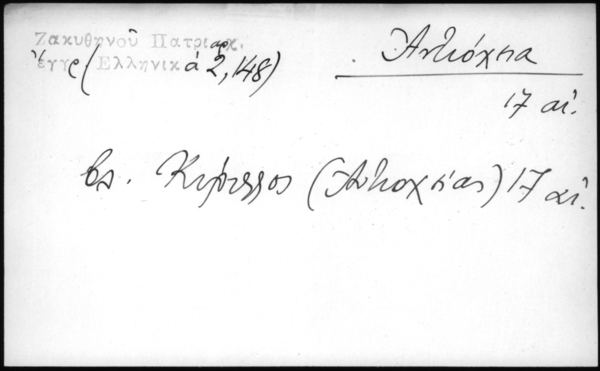 Ζακυθηνοῦ Πατριαρχ.
ἔγγρ( Ἑλληνικά ἀρ 2, 148)
Ἀντιόχεια
17 αἰ.
βλ. Κύριλλος (Ἀντιοχείας) 17 αἰ.